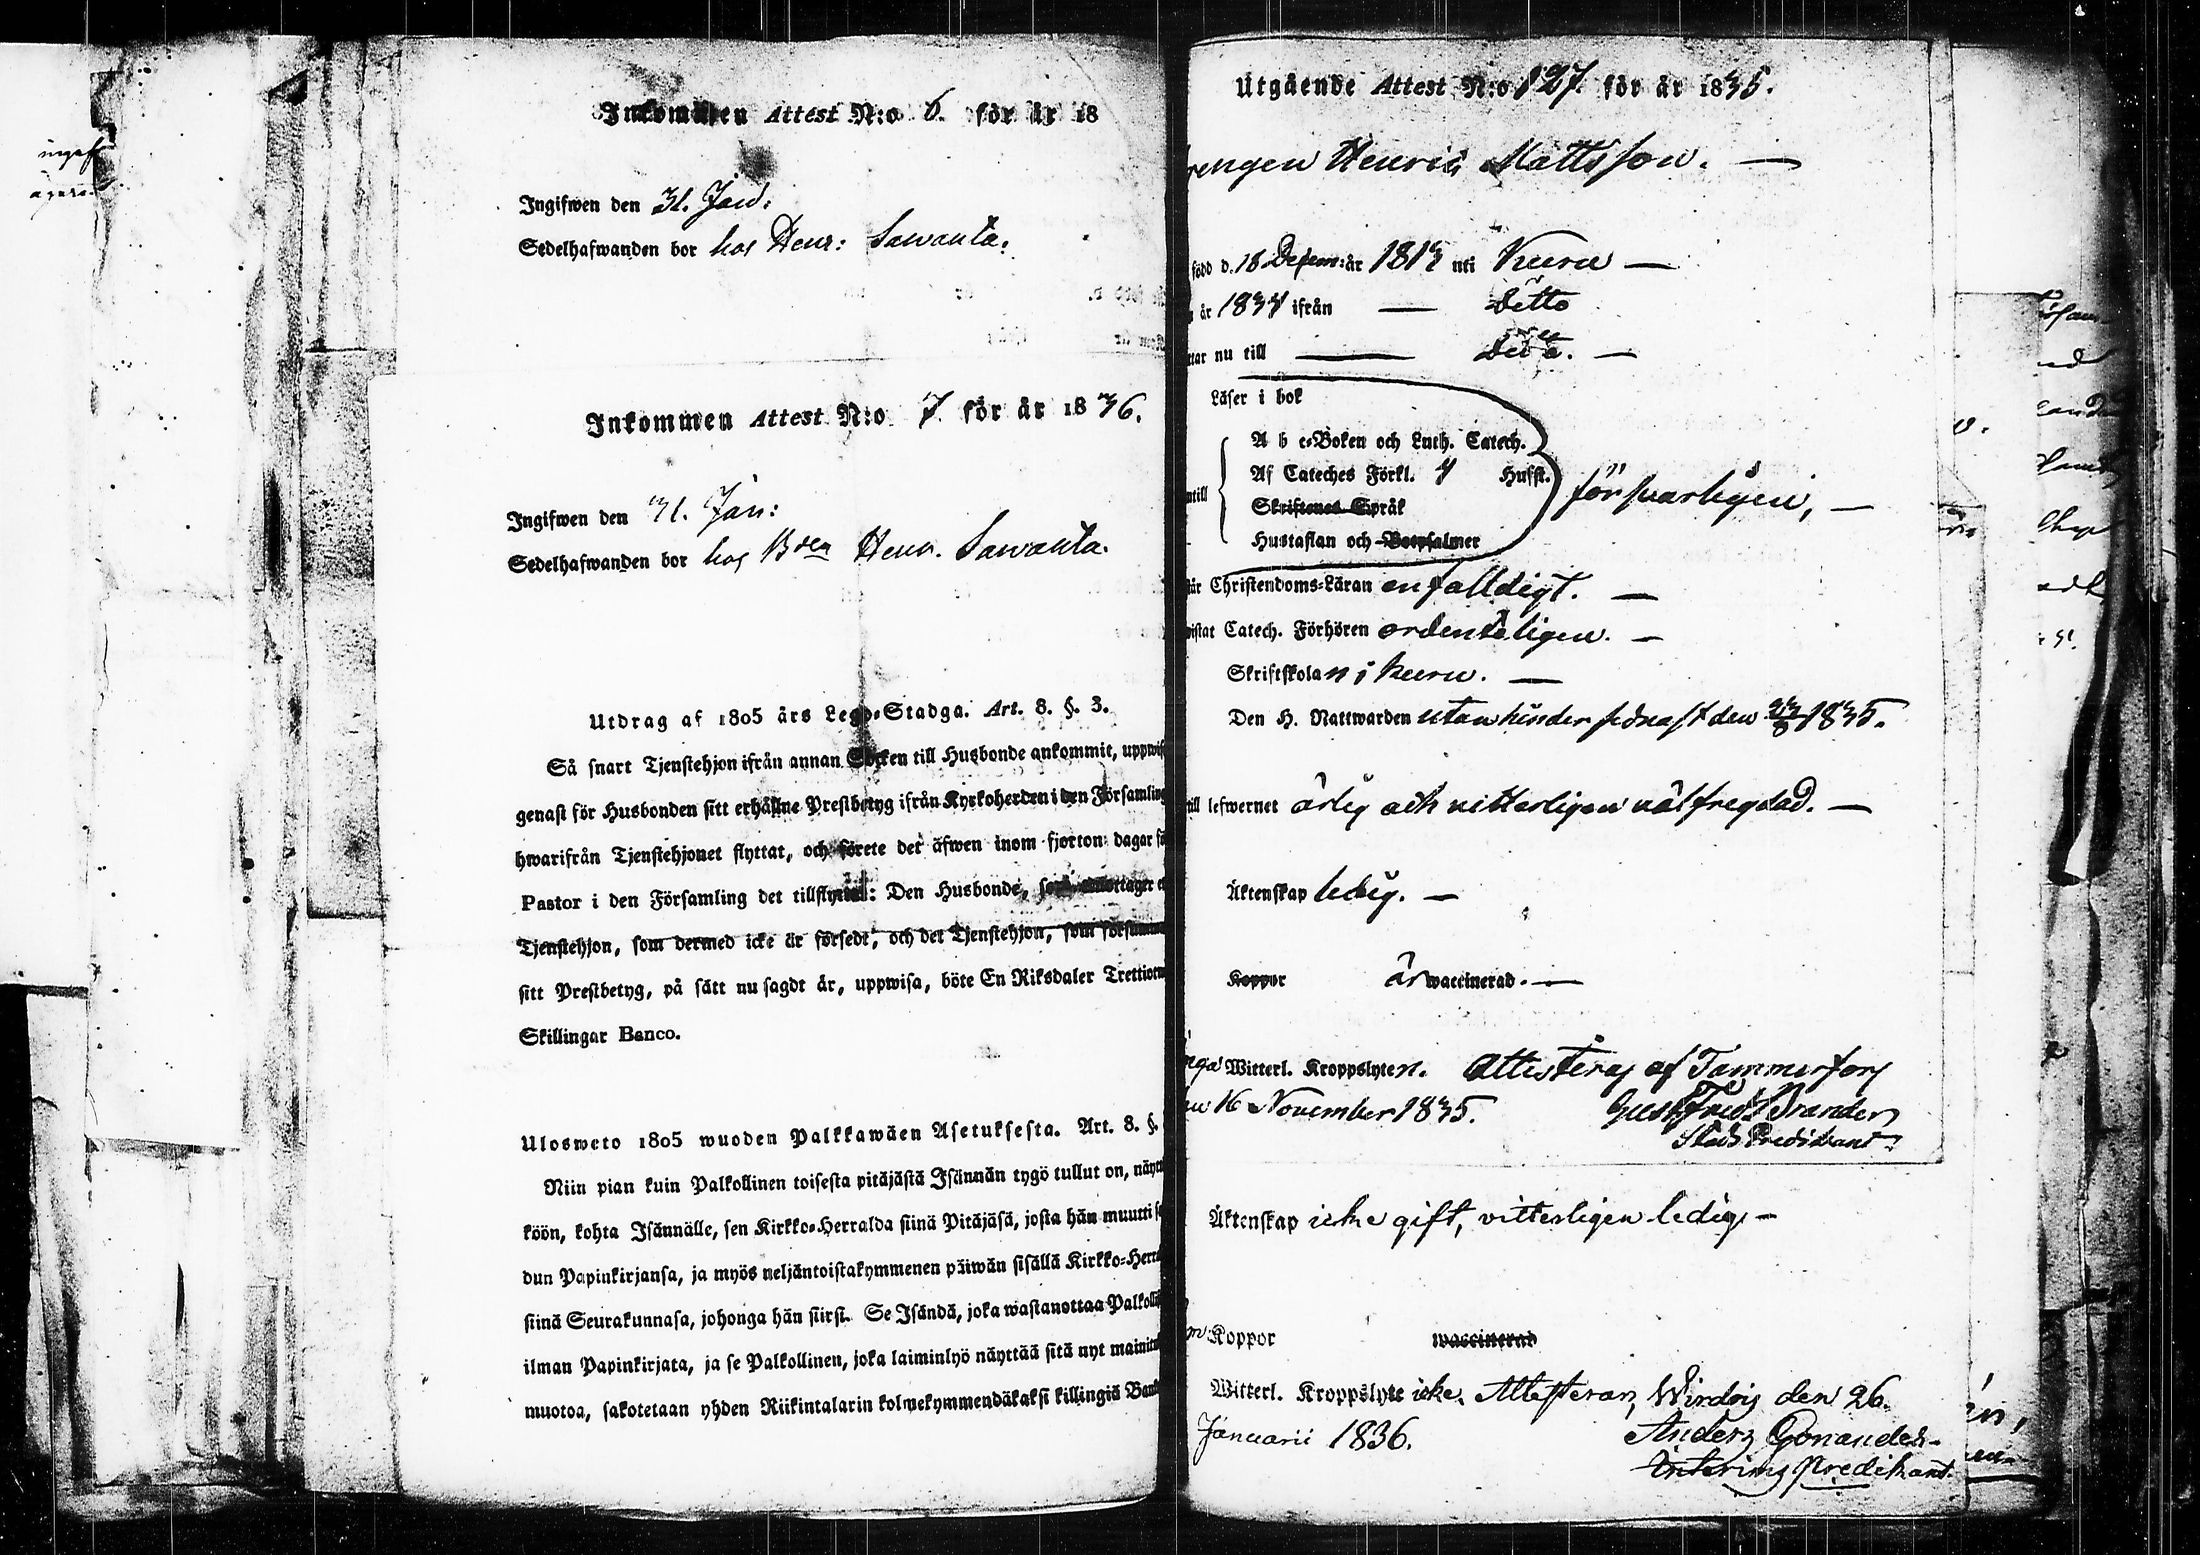 Inkommen Attest N:o 6. för år 18
Ingifwen den 31. Jan:
Sedelhafwanden bor hos Henr: Sawanta.
Inkommen Attest N:o 7 för år 1836.
Ingifwen den 31. Jan:
Sedelhafwanden bor hos Henr. Sawanta.
Utdrag af 1805 års Lego-Stadga. Art. 8. §. 3.
Så snart Tjenstehjon ifrån annan Socken till Husbonde ankommit, uppwis
genast för Husbonden sitt erhållne Prestbetyg ifrån Kyrkoherden i den Församling
hwarifrån Tjenstehjonet flyttat, och förete det äfwen inom fjorton dagar fö
Pastor i den Församling det tillflyttat: Den Husbonde, som emottager e
Tjenstehjon, som dermed icke är försedt, och det Tjenstehjon, som försumma
sitt Prestbetyg, på sätt nu sagdt är, uppwisa, böte En Riksdaler Trettiotw
Skillingar Banco.
Ulosweto 1805 wuoden Palkkawäen Asetuksesta. Art. 8. §.
Niin pian kuin Palkollinen toisesta pitäjästä Isännän tygö tullut on, näytt
köön, kohta Isännälle, sen Kirkko-Herralda siinä Pitäjäsä, josta hän muutti s
dun Papinkirjansa, ja myös neljäntoistakymmenen päiwän sisällä Kirkko-Herra
siinä Seurakunnasa, johonga hän siirsi. Se Isändä, joka wastanottaa Palkolli
ilman Papinkirjata, ja se Palkollinen, joka laiminlyö näyttää sitä nyt mainitu
muotoa, sakotetaan yhden Riikintalarin kolmekymmendäkaksi killingiä Bank
Utgående Attest N:o 127. för år 1835.
rengen Henric Mattsson.
född d. 18 Decem: år 1813 uti Kuru
år 1834 ifrån Ditto
ttar nu till Dito.
Läser i bok
A b c-Boken och Luth. Catech.
Af Cateches Förkl. 4 Husst.
ntill
Skriftenes Språk
försvarligen,
Hustaflan och Botpsalmer
Christendoms-Läran enfalldigt.
wistat Catech. Förhören ordenteligen.
Skriftskolan i Kuru.
Den H. Nattwarden utan hinder sednast den 23/8 1835.
till lefwernet ärlig och vitterligen välfregdad.
Äktenskap ledig.
Koppor är waccinerad.
Witterl. Kroppslyten. Attesteras af Tammerfors
16 November 1835. Gust. Fred. Brander
Stads Predikant.
Äktenskap icke gift, vitterligen ledig
Koppor waccinerad
Witterl. Kroppslyte icke. Attesteras, Wirdois den 26.
Januarii 1836. Anders Gonander
Interims Predikant.